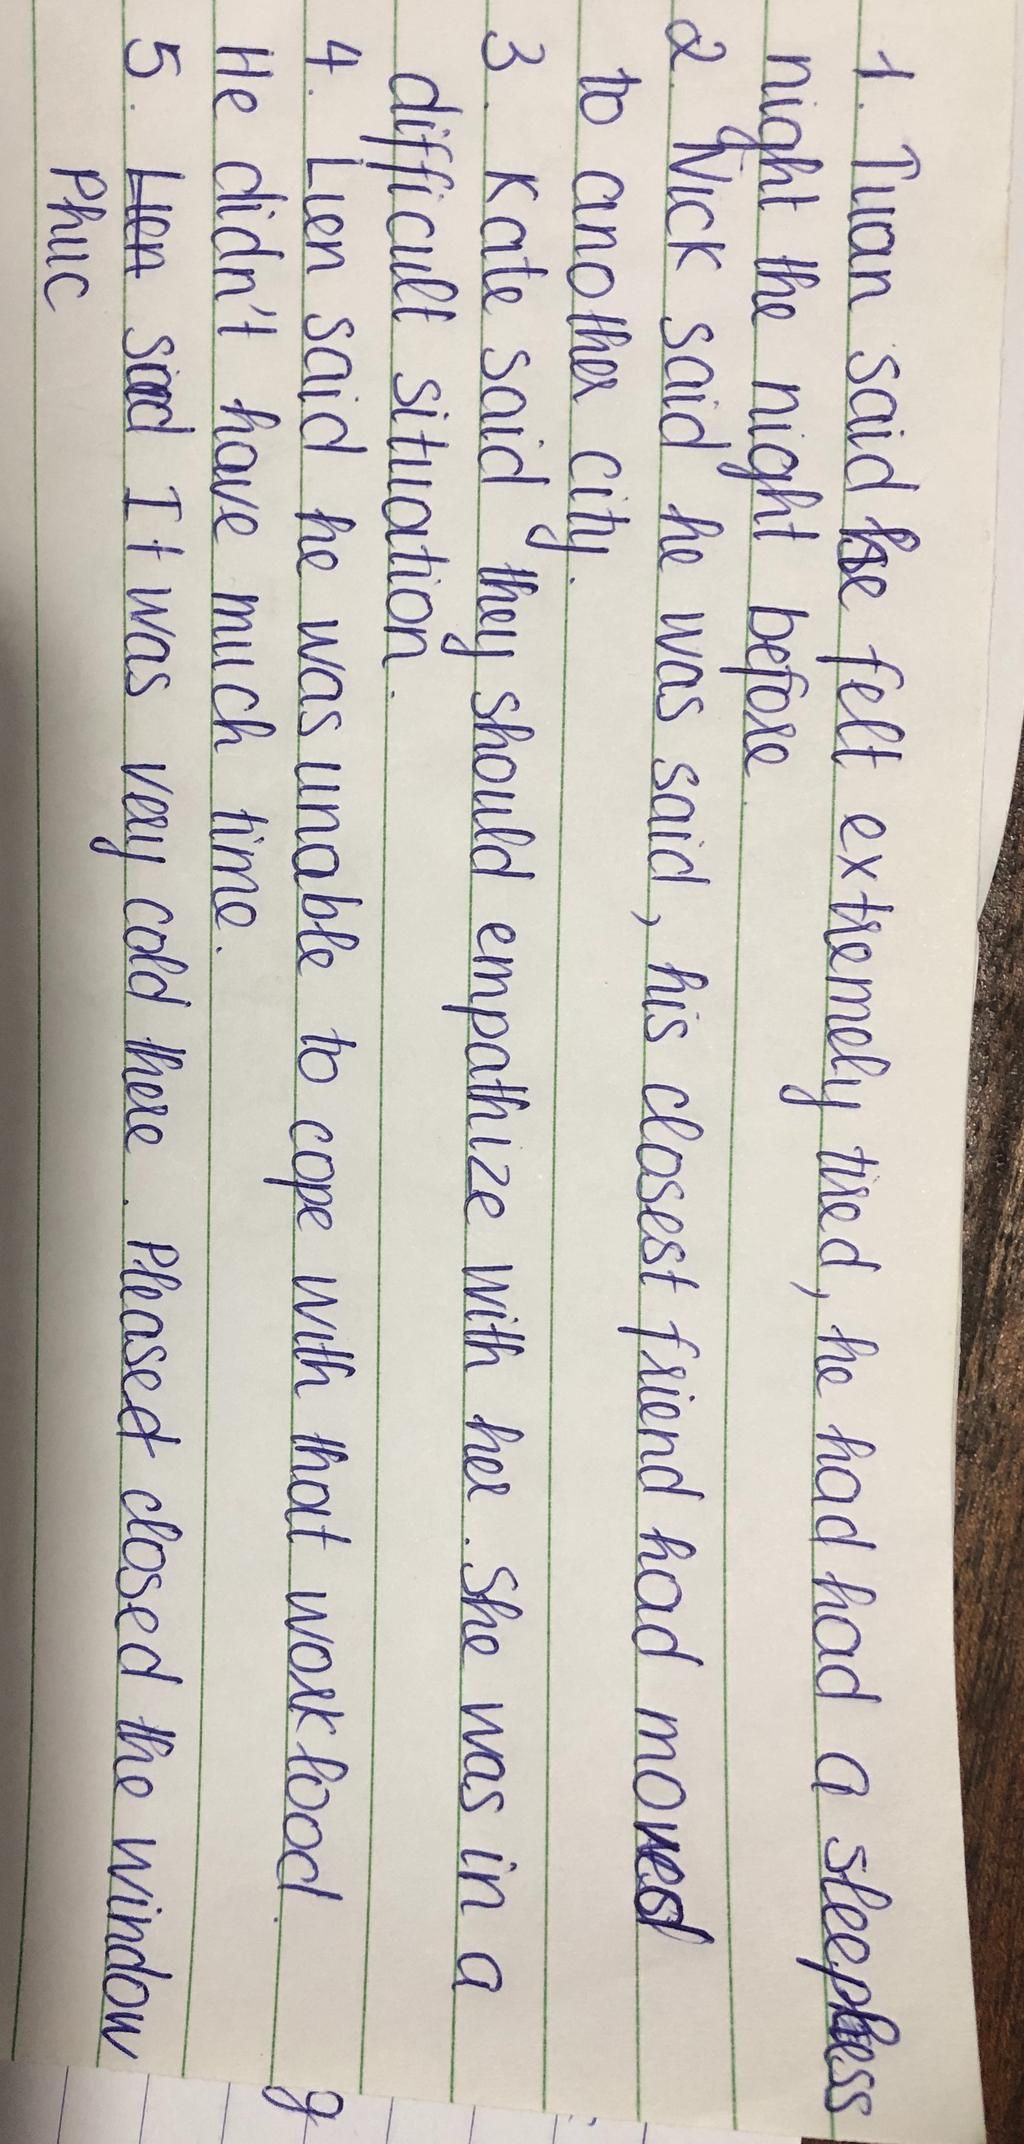 1. Tuan said he felt extremely tired, he had had a sleepless
night the night before.
2. Nick said he was said, his closest friend had moved
to another city.
3. Kate said they should empathize with her. She was in a
difficult situation.
4. Lien said he was unable to cope with that work load.
He didn't have much time.
5. Lien said It was very cold there. Please closed the window
Phuc